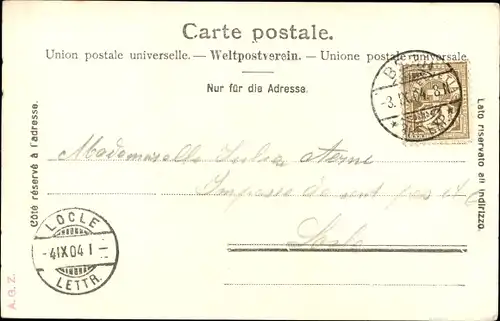 Carte postale.
Union postale universelle. — Weltpostverein. — Unione postale universale.
Nur für die Adresse.
Côté réservé à l'adresse.
Lato riservato all'indirizzo.
-3.IX.04.
Mademoiselle Julia
Impasse de
LOCLE
-4IX04 I-
LETTR.
A. G. Z.